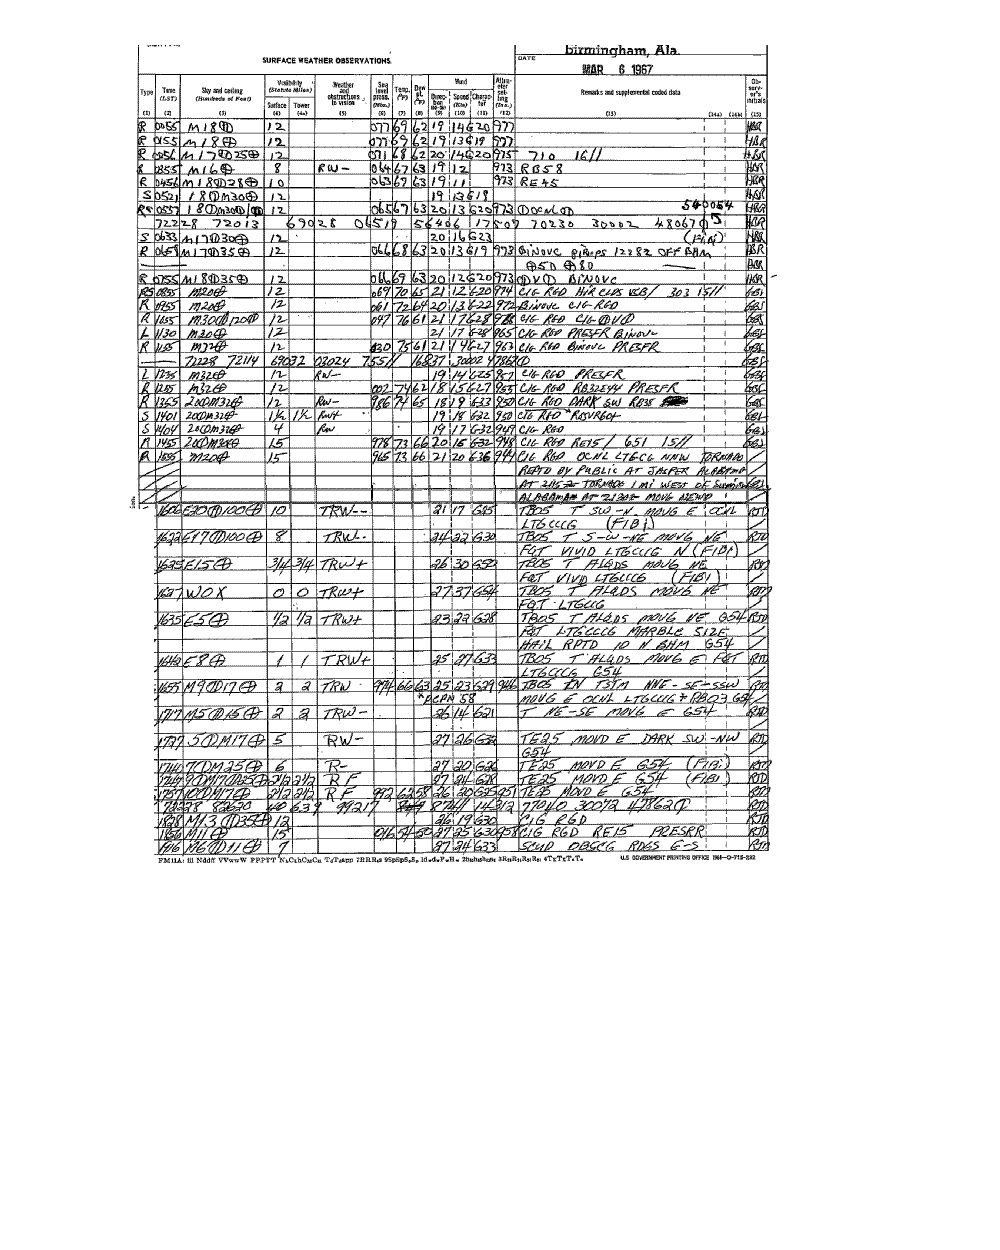 birmingham, Ala.
SURFACE WEATHER OBSERVATIONS
DATE
MAR 6 1967
Type Time (LST) Sky and ceiling (Hundreds of Feet) Visibility (Statute Miles) Surface Tower Weather and obstructions to vision Sea level press. (Mbs.) Temp. (°F) Dew pt. (°F) Wind Direction Speed (Kts) Character Altimeter setting (Ins.) Remarks and supplemental coded data Observer's initials
(1) (2) (3) (4) (4a) (5) (6) (7) (8) (9) (10) (11) (12) (13) (14a) (14b) (15)
R 0055 M18⊕ 12 077 69 62 19 14 G20 977 HBR
R 0155 M18⊕ 12 077 69 62 19 13 G19 977 HBR
R 0256 M17⦶25⊕ 12 071 68 62 20 14 G20 975 710 16// HBR
R 0355 M16⊕ 8 RW- 064 67 63 19 12 973 RB58 HBR
R 0456 M18⦶28⊕ 10 063 67 63 19 11 973 RE45 HBR
S 0521 18⦶M30⊕ 19 13 G19
12 065 67 63 20 13 G20 973 HBR
72228 72013 69028 06519 56406 17509 70230 30002 48067
S 0633 M17⦶30⊕ 12 20 16 G23 (FIBI) HBR
R 0659 M17⦶35⊕ 12 066 68 63 20 13 G19 973 BINOVC PIREPS 1228Z OFF BHM HBR
⊕50 ⊕80 HBR
R 0755 M18⦶35⊕ 12 066 69 63 20 12 G20 973 ⦶V⊕ BINOVC HBR
RS 0855 M20⊕ 12 069 70 65 21 12 G20 974 CIG RGD HIR CLDS VSB/ 303 15//
R 0955 M20⊕ 12 061 72 64 20 13 G22 972 BINOVC CIG RGD
R 1055 M30⦶120⊕ 12 047 76 61 21 17 G28 968 CIG RGD CIG ⊕V⦶
L 1130 M30⊕ 12 21 17 G28 965 CIG RGD PRESFR BINOVC
R 1155 M32⊕ 12 030 75 61 21 14 G27 963 CIG RGD BINOVC PRESFR
72228 72114 69032 03024 755// 16837 30002 47862
L 1235 M32⊕ 12 RW- 19 14 G25 957 CIG RGD PRESFR
R 1255 M32⊕ 12 002 74 62 18 15 G27 955 CIG RGD RB32E44 PRESFR
R 1355 20⦶M32⊕ 12 RW- 986 74 65 18 19 G33 950 CIG RGD DARK SW RB38
S 1401 20⦶M32⊕ 1½ 1½ RW+ 19 18 G32 950 CIG RGD
S 1404 20⦶M32⊕ 4 RW 19 17 G32 949 CIG RGD
R 1455 20⦶M30⊕ 15 978 73 66 20 15 G32 948 CIG RGD RE15/ 651 15//
R 1555 M20⊕ 15 965 73 66 21 20 G36 944 CIG RGD OCNL LTGCG NNW TORNADO
REPTD BY PUBLIC AT JASPER ALABAMA
AT 2115Z TORNADO 1 MI WEST OF
ALABAMA AT 2130Z MOVG NEWD
1606 E20⦶100⊕ 10 TRW-- 21 17 G25 TB05 T SW-N MOVG E OCNL RTD
LTGCCCG (FIBI)
1622 E17⦶100⊕ 8 TRW- 24 22 G30 TB05 T S-W-NE MOVG NE RTD
FQT VIVID LTGCCCG N (FIBI)
1625 E15⊕ ¾ ¾ TRW+ 26 30 G50 TB05 T ALQDS MOVG NE RTD
FQT VIVID LTGCCCG (FIBI)
1627 W0X 0 0 TRW+ 27 37 G54 TB05 T ALQDS MOVG NE RTD
FQT LTGCG
1635 E5⊕ ½ ½ TRW+ 23 22 G28 TB05 T ALQDS MOVG NE G54 RTD
FQT LTGCCCG MARBLE SIZE
HAIL RPTD 10 N BHM G54
1642 E8⊕ 1 1 TRW+ 25 27 G33 TB05 T ALQDS MOVG E FQT RTD
LTGCCCG G54
1655 M9⦶17⊕ 2 2 TRW 994 66 63 25 23 G29 946 TB05 NNE-SE-SSW RTD
*PCPN 58 MOVG E OCNL LTGCCCG * G54
1717 M5⦶15⊕ 2 2 TRW- 26 14 G21 T NE-SE MOVG E G54 RTD
1727 5⦶M17⊕ 5 RW- 27 26 G32 TE25 MOVD E DARK SW-NW RTD
G54
1740 7⦶M25⊕ 6 R- 27 20 G26 TE25 MOVD E G54 (FIBI) RTD
1749 9⦶M17⦶25⊕ 2½ 2½ RF 27 24 G28 TE25 MOVD E G54 (FIBI) RTD
1757 10⦶M17⊕ 2½ 2½ RF 992 62 58 26 20 G25 951 TE25 MOVD E G54 RTD
72228 82620 40639 99217 87041 14312 77040 30072 47862 RTD
1828 M13⦶35⊕ 12 26 19 G30 CIG RGD RTD
1856 M11⊕ 15 016 54 50 27 25 G30 958 CIG RGD RE15 PRESRR RTD
1906 M6⦶11⊕ 7 27 24 G33 SCUD OBSCG RDGS E-S RTD
U.S. GOVERNMENT PRINTING OFFICE